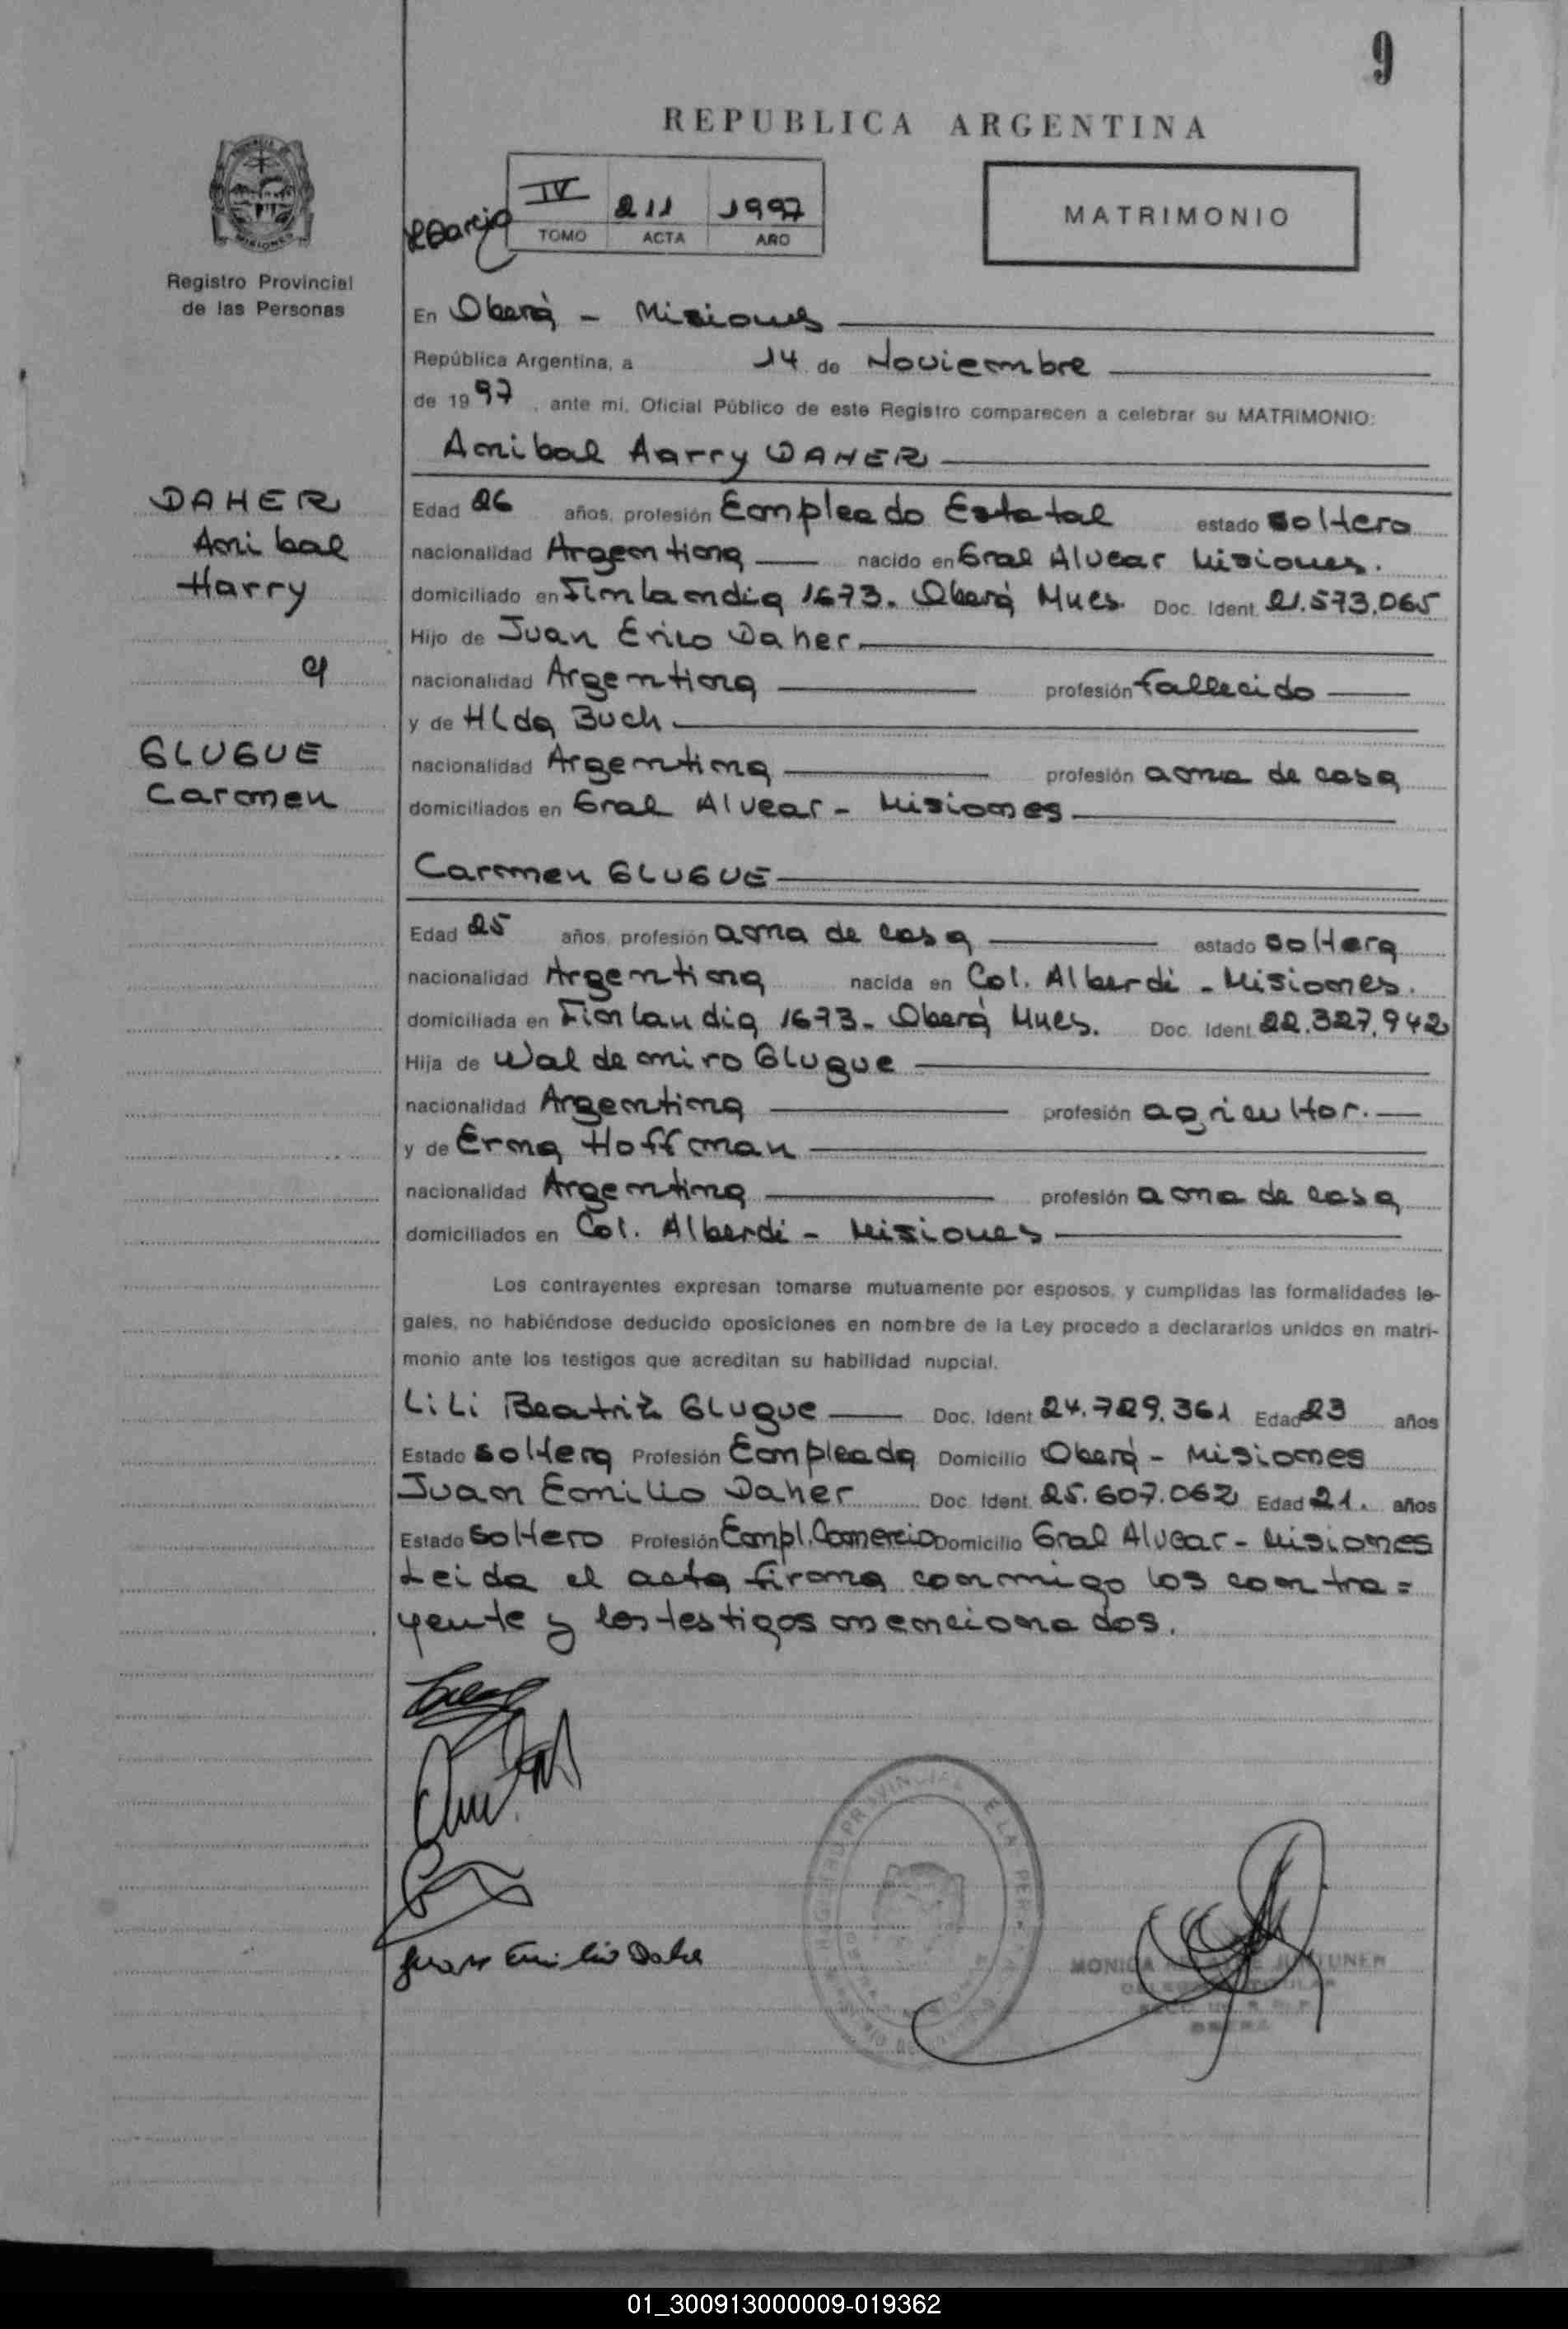 9
REPUBLICA ARGENTINA
IV 211 1997
TOMO ACTA AÑO
MATRIMONIO
Registro Provincial
de las Personas
En Oberá - Misiones
República Argentina, a 14 de Noviembre
de 1997, ante mi, Oficial Público de este Registro comparecen a celebrar su MATRIMONIO:
Anibal Harry DAHER
DAHER
Anibal
Harry
y
GLUGUE
Carmen
Edad 26 años, profesión Empleado Estatal estado soltero
nacionalidad Argentina nacido en Gral Alvear Misiones.
domiciliado en Finlandia 1673. Oberá Mnes. Doc. Ident. 21.573.065
Hijo de Juan Erico Daher.
nacionalidad Argentina profesión fallecido
y de Hlda Buch.
nacionalidad Argentina profesión ama de casa
domiciliados en Gral Alvear - Misiones
Carmen GLUGUE
Edad 25 años, profesión ama de casa estado soltera
nacionalidad Argentina nacida en Col. Alberdi - Misiones.
domiciliada en Finlandia 1673. Oberá Mnes. Doc. Ident. 22.327.942
Hija de Waldemiro Glugue
nacionalidad Argentina profesión agricultor.
y de Erma Hoffman
nacionalidad Argentina profesión ama de casa
domiciliados en Col. Alberdi - Misiones
Los contrayentes expresan tomarse mutuamente por esposos, y cumplidas las formalidades le-
gales, no habiéndose deducido oposiciones en nombre de la Ley procedo a declararlos unidos en matri-
monio ante los testigos que acreditan su habilidad nupcial.
Lili Beatriz Glugue Doc. Ident 24.729.361 Edad 23 años
Estado soltera Profesión Empleada Domicilio Oberá - Misiones
Juan Emilio Daher Doc. Ident. 25.607.062 Edad 21. años
Estado soltero Profesión Empl. Comercio Domicilio Gral Alvear - Misiones
Leida el acta firma conmigo los contra=
yente y los testigos mencionados.
Juan Emilio Daher
MONICA
01_300913000009-019362